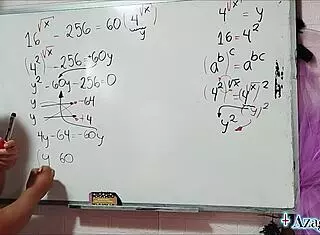 16^√x - 256 - 60(4^√x)
y
(4²)^√x - 256 = 60y
y² - 60y - 256 = 0
y -64
y +4
4y - 64 = -60y
(y 60
4^√x = y
16 = 4²
(a^b)^c = a^bc
(4²)^√x = (4^√x)²
y²
+ Azag